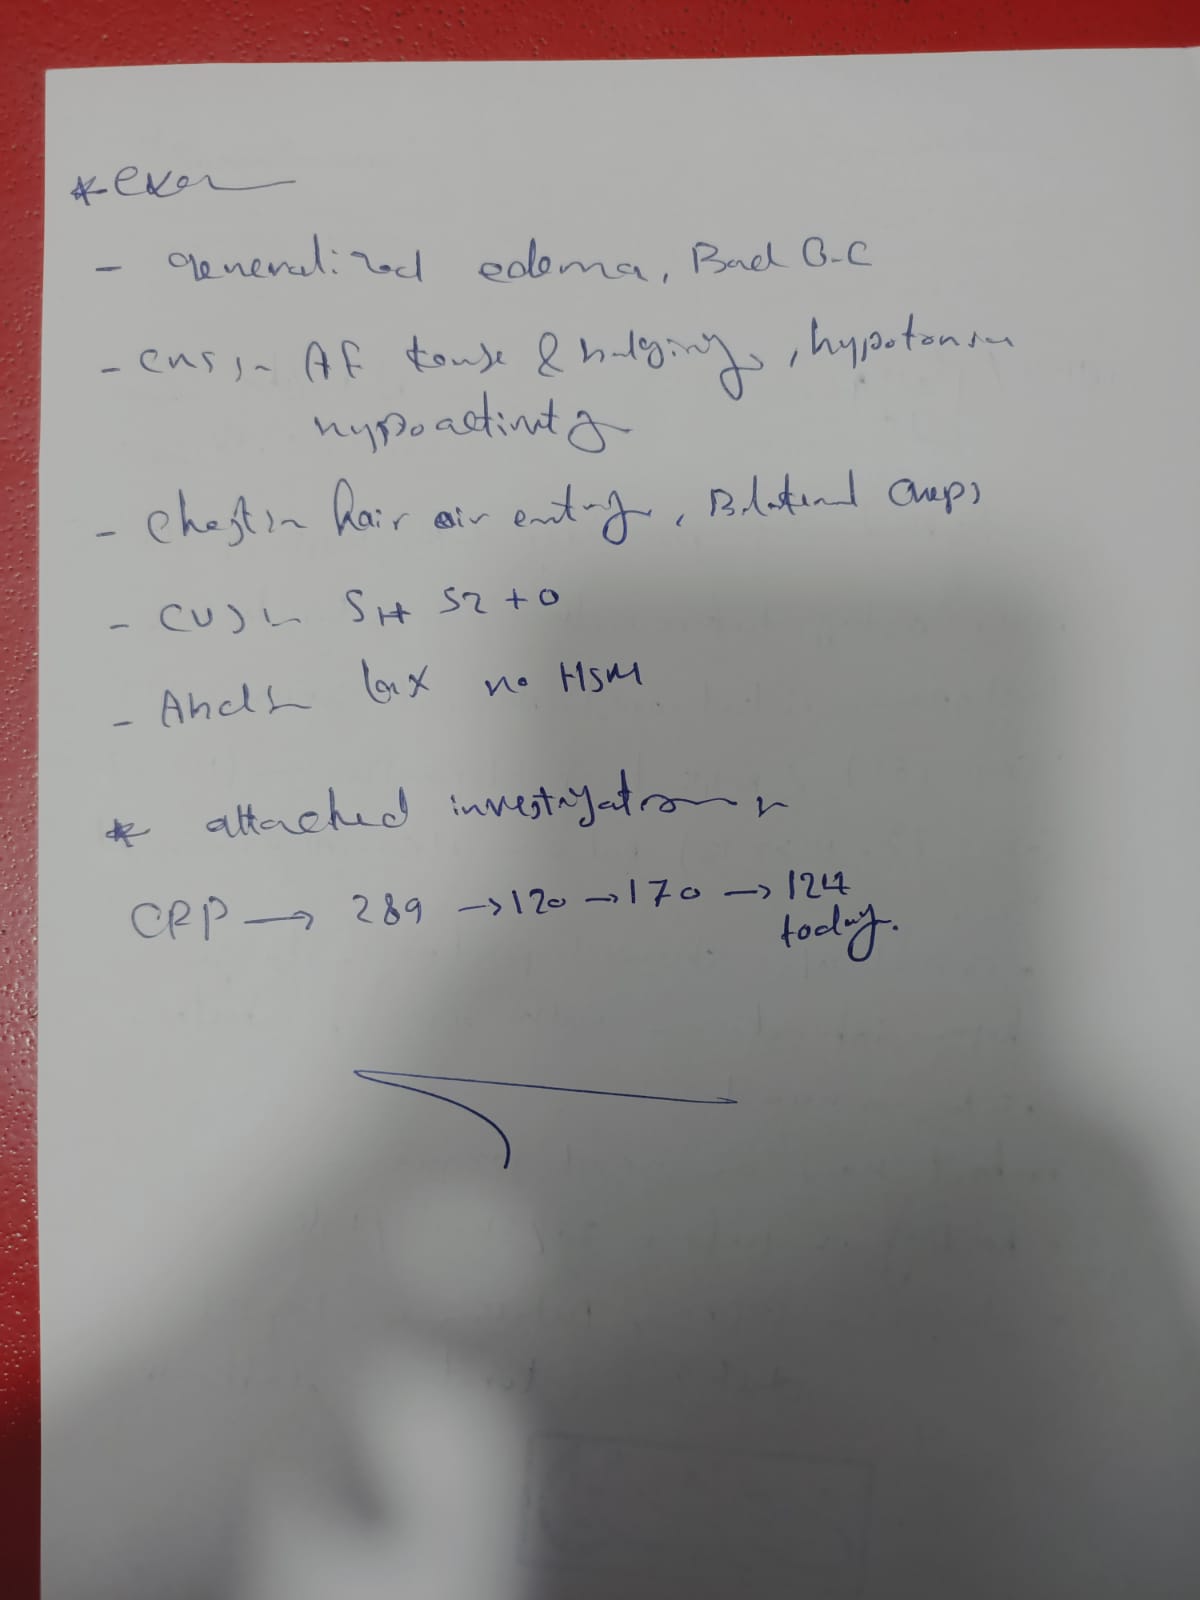 * exam
- generalized edema, Bad G.C
- CNS :- AF tense & bulging, hypotonia
hypoactivity
- Chest :- fair air entry, Bilateral Creps
- CVS :- S1+ S2 + 0
- Abd :- lax no HSM
* attached investigations :-
CRP → 289 → 120 → 170 → 124
today.